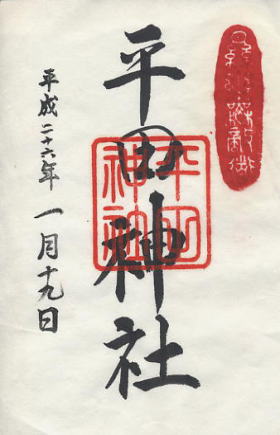 平田神社
平田神社
平成二十六年 一月十九日